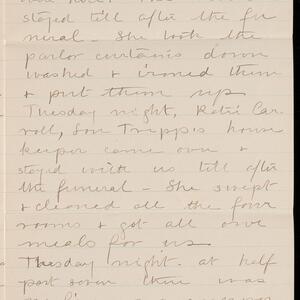 stayed till after the fu
neral - She took the
parlor curtains down
washed & ironed them
& put them up
Tuesday night, Katie Car-
roll, Son Tripp's house
keeper came over &
stayed with us till after
the funeral - She swept
& cleaned all the four
rooms & got all our
meals for us
Thursday night - at half
past seven there was